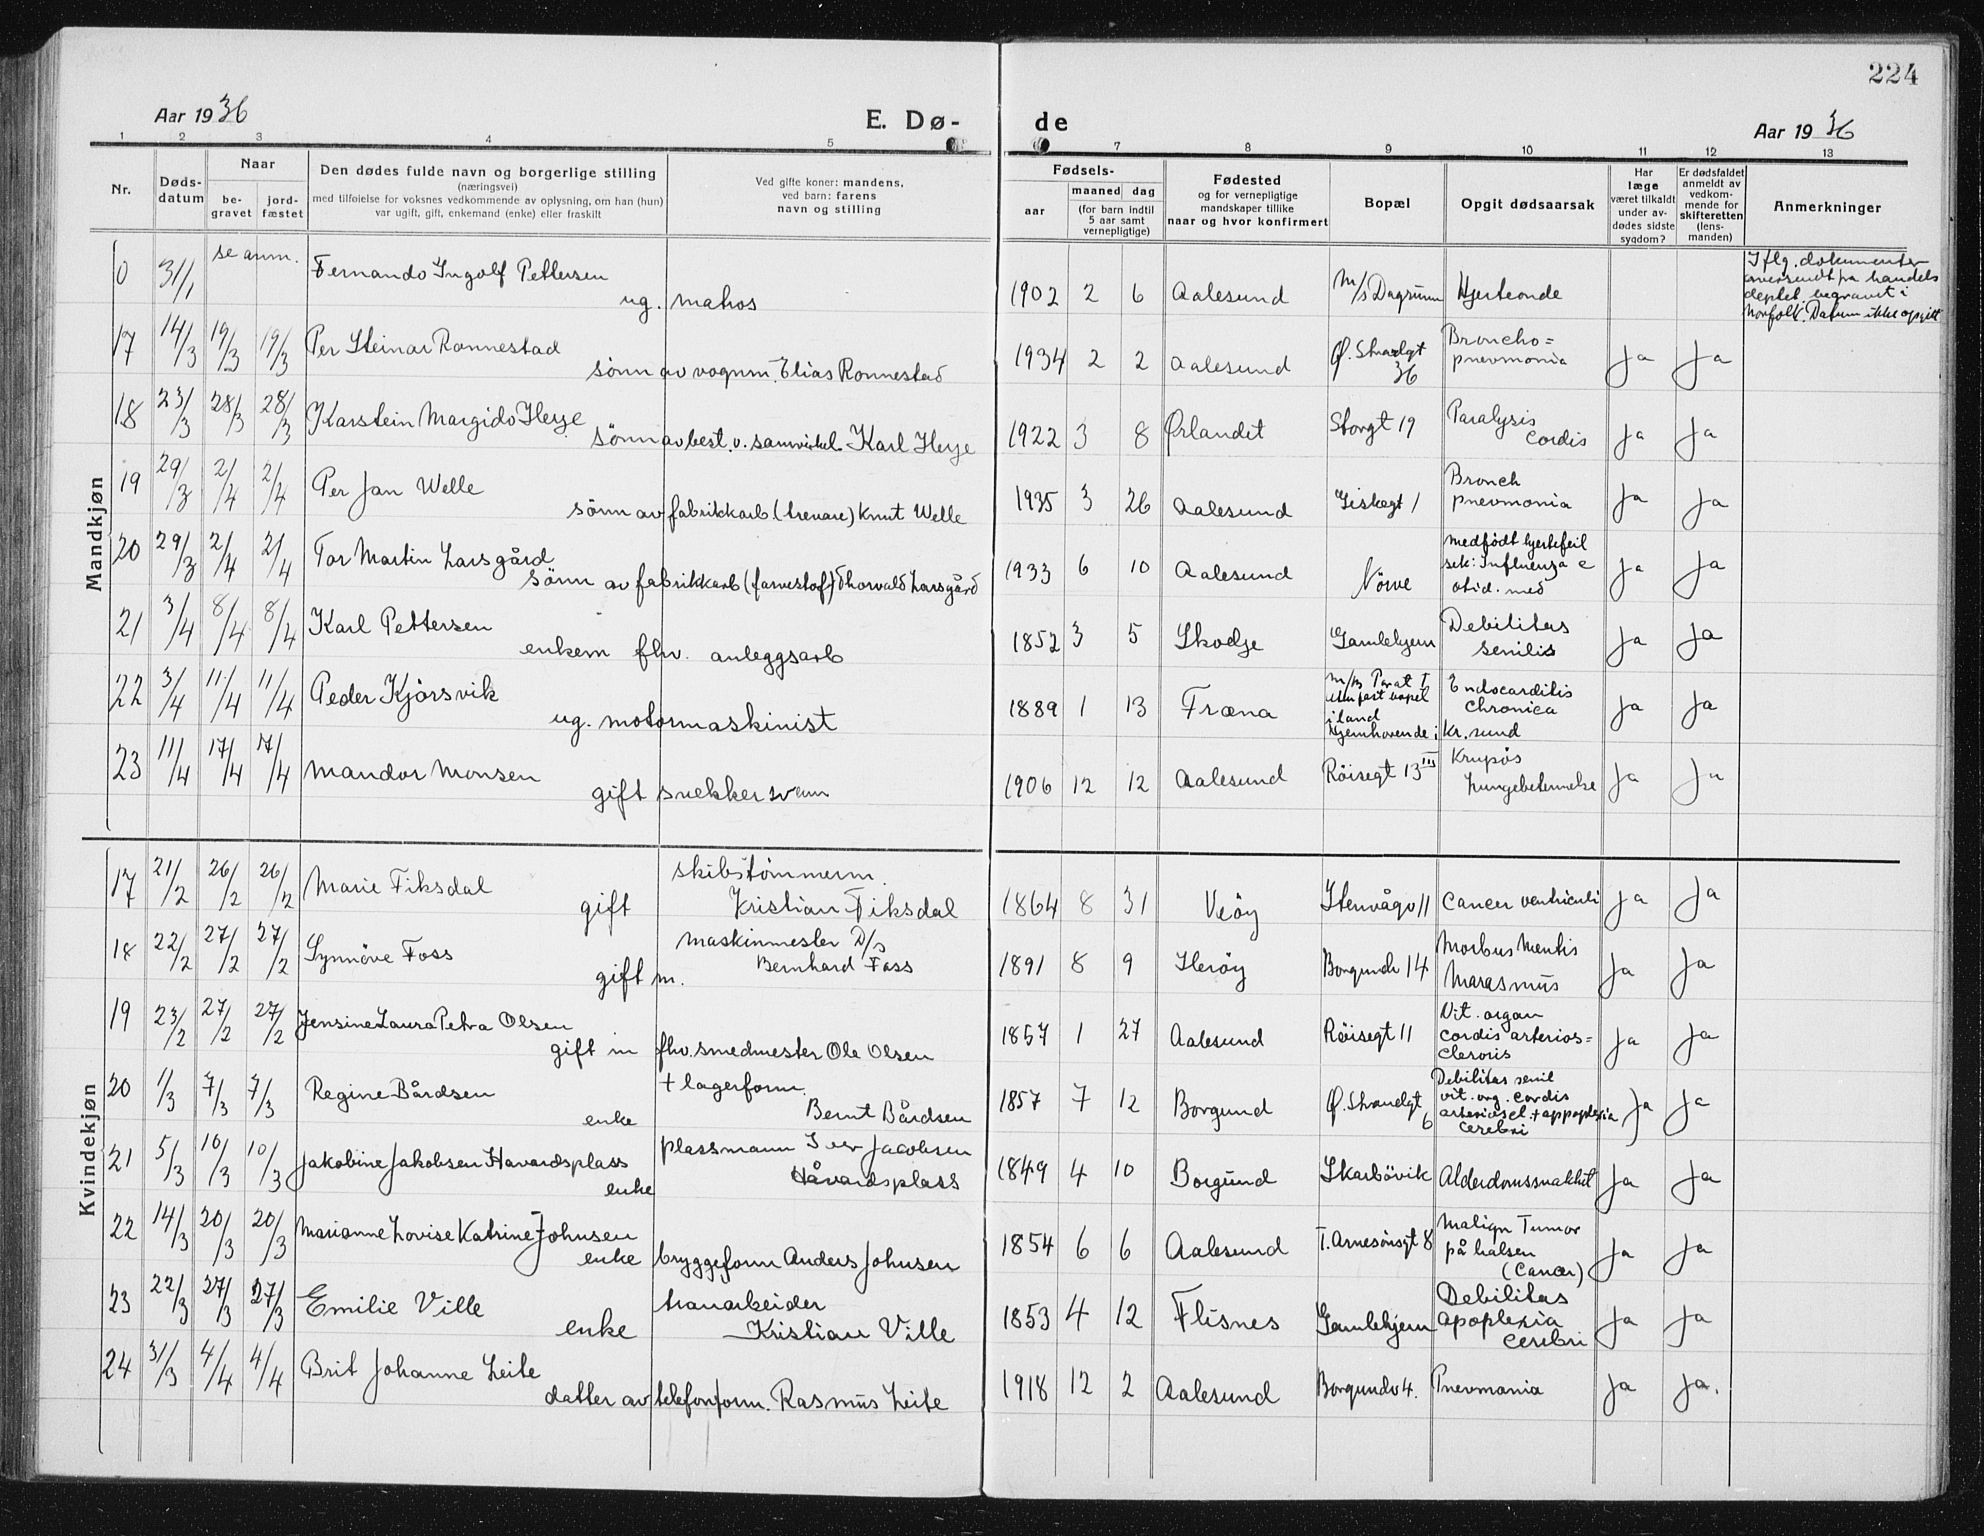 224
Aar 1936
E. Dø-
de
Aar 1936
1 2 3 4 5 7 8 9 10 11 12 13
Nr.
Døds-
datum
Naar
be-
gravet
jord-
fæstet
Den dødes fulde navn og borgerlige stilling
(næringsvei)
med tilføielse for voksnes vedkommende av oplysning, om han (hun)
var ugift, gift, enkemand (enke) eller fraskilt
Ved gifte koner: mandens,
ved barn: farens
navn og stilling
Fødsels-
aar
maaned dag
(for barn indtil
5 aar samt
vernepligtige)
Fødested
og for vernepligtige
mandskaper tillike
naar og hvor konfirmert
Bopæl
Opgit dødsaarsak
Har
læge
været tilkaldt
under av-
dødes sidste
sygdom?
Er dødsfaldet
anmeldt av
vedkom-
mende for
skifteretten
(lens-
manden)
Anmerkninger
Mandkjøn
0 31/1 se anm. Fernando Ingolf Pettersen
ug. matros
1902 2 6 Aalesund M/s Dagrunn Hjerteonde
Iflg. dokumenter
oversendt fra handels
deptet begravet i
Norfolk. Datum ikke opgitt
17 14/3 19/3 19/3 Per Steinar Rønnestad
sønn av vognm. Elias Rønnestad
1934 2 2 Aalesund Ø. Strandgt
36
Broncho=
pnevmonia
Ja Ja
18 23/3 28/3 28/3 Karstein Margido Herje
sønn av best. v. samvirkel. Karl Herje
1922 3 8 Ørlandet Storgt 19 Paralysis
Cordis
Ja Ja
19 29/3 2/4 2/4 Per Jan Welle
sønn av fabrikkarb (trevare) Knut Welle
1935 3 26 Aalesund Giskegt 1 Bronch
pnevmonia
Ja Ja
20 29/3 2/4 2/4 Tor Martin Larsgård
sønn av fabrikkarb (farvestof) Thorvald Larsgård
1933 6 10 Aalesund Nörve medfødt hjertefeil
sek: Influenza c
otid. med
Ja Ja
21 3/4 8/4 8/4 Karl Pettersen
enkem fhv. anleggsarb
1852 3 5 Skodje Gamlehjem Debilitas
senilis
Ja Ja
22 3/4 11/4 11/4 Peder Kjörsvik
ug. motormaskinist
1889 1 13 Fræna
uten fast bopel
i land
hjemhørende i Kr. sund
Endocarditis
chronica
Ja Ja
23 11/4 17/4 17/4 Mandor Monsen
gift snekkersvenn
1906 12 12 Aalesund Röisegt 13 III Krupøs
Lungebetennelse
Ja Ja
Kvindekjøn
17 21/2 26/2 26/2 Marie Fiksdal
gift
skibstømmerm.
Kristian Fiksdal
1864 8 31 Veöy Stenvågv 11 Cancer ventriculi Ja Ja
18 22/2 27/2 27/2 Synnöve Foss
gift m.
maskinmester D/s
Bernhard Foss
1891 8 9 Heröy Borgundv 14 Morbus Mentis
Marasmus
Ja Ja
19 23/2 27/2 27/2 Jensine Laura Petra Olsen
gift m fhv. smedmester Ole Olsen
1857 1 27 Aalesund Röisegt 11 Vit. organ
cordis arterios=
clerosis
Ja Ja
20 1/3 7/3 7/3 Regine Bårdsen
enke
+ lagerform.
Bernt Bårdsen
1857 7 12 Borgund Ø. Strandgt
6
Debilitas senil
vit. org. cordis
arterioscl. + appoplexia
cerebri
Ja Ja
21 5/3 10/3 10/3 Jakobine Jakobsen Havardsplass
enke
plassmann Iver Jacobsen
Håvardsplass
1849 4 10 Borgund Skarbövik Alderdomssvakhet Ja Ja
22 14/3 20/3 20/3 Marianne Lovise Katrine Johnsen
enke bryggeform Anders Johnsen
1854 6 6 Aalesund T. Arnesönsgt 8 Malign Tumor
på halsen
(Cancer)
Ja Ja
23 22/3 27/3 27/3 Emilie Ville
enke
havarbeider
Kristian Ville
1853 4 12 Flisnes Gamlehjem Debilitas
apoplexia
cerebri
Ja Ja
24 31/3 4/4 4/4 Brit Johanne Leite
datter av telefonform. Rasmus Leite
1918 12 2 Aalesund Borgundv 4. Pnevmonia Ja Ja.